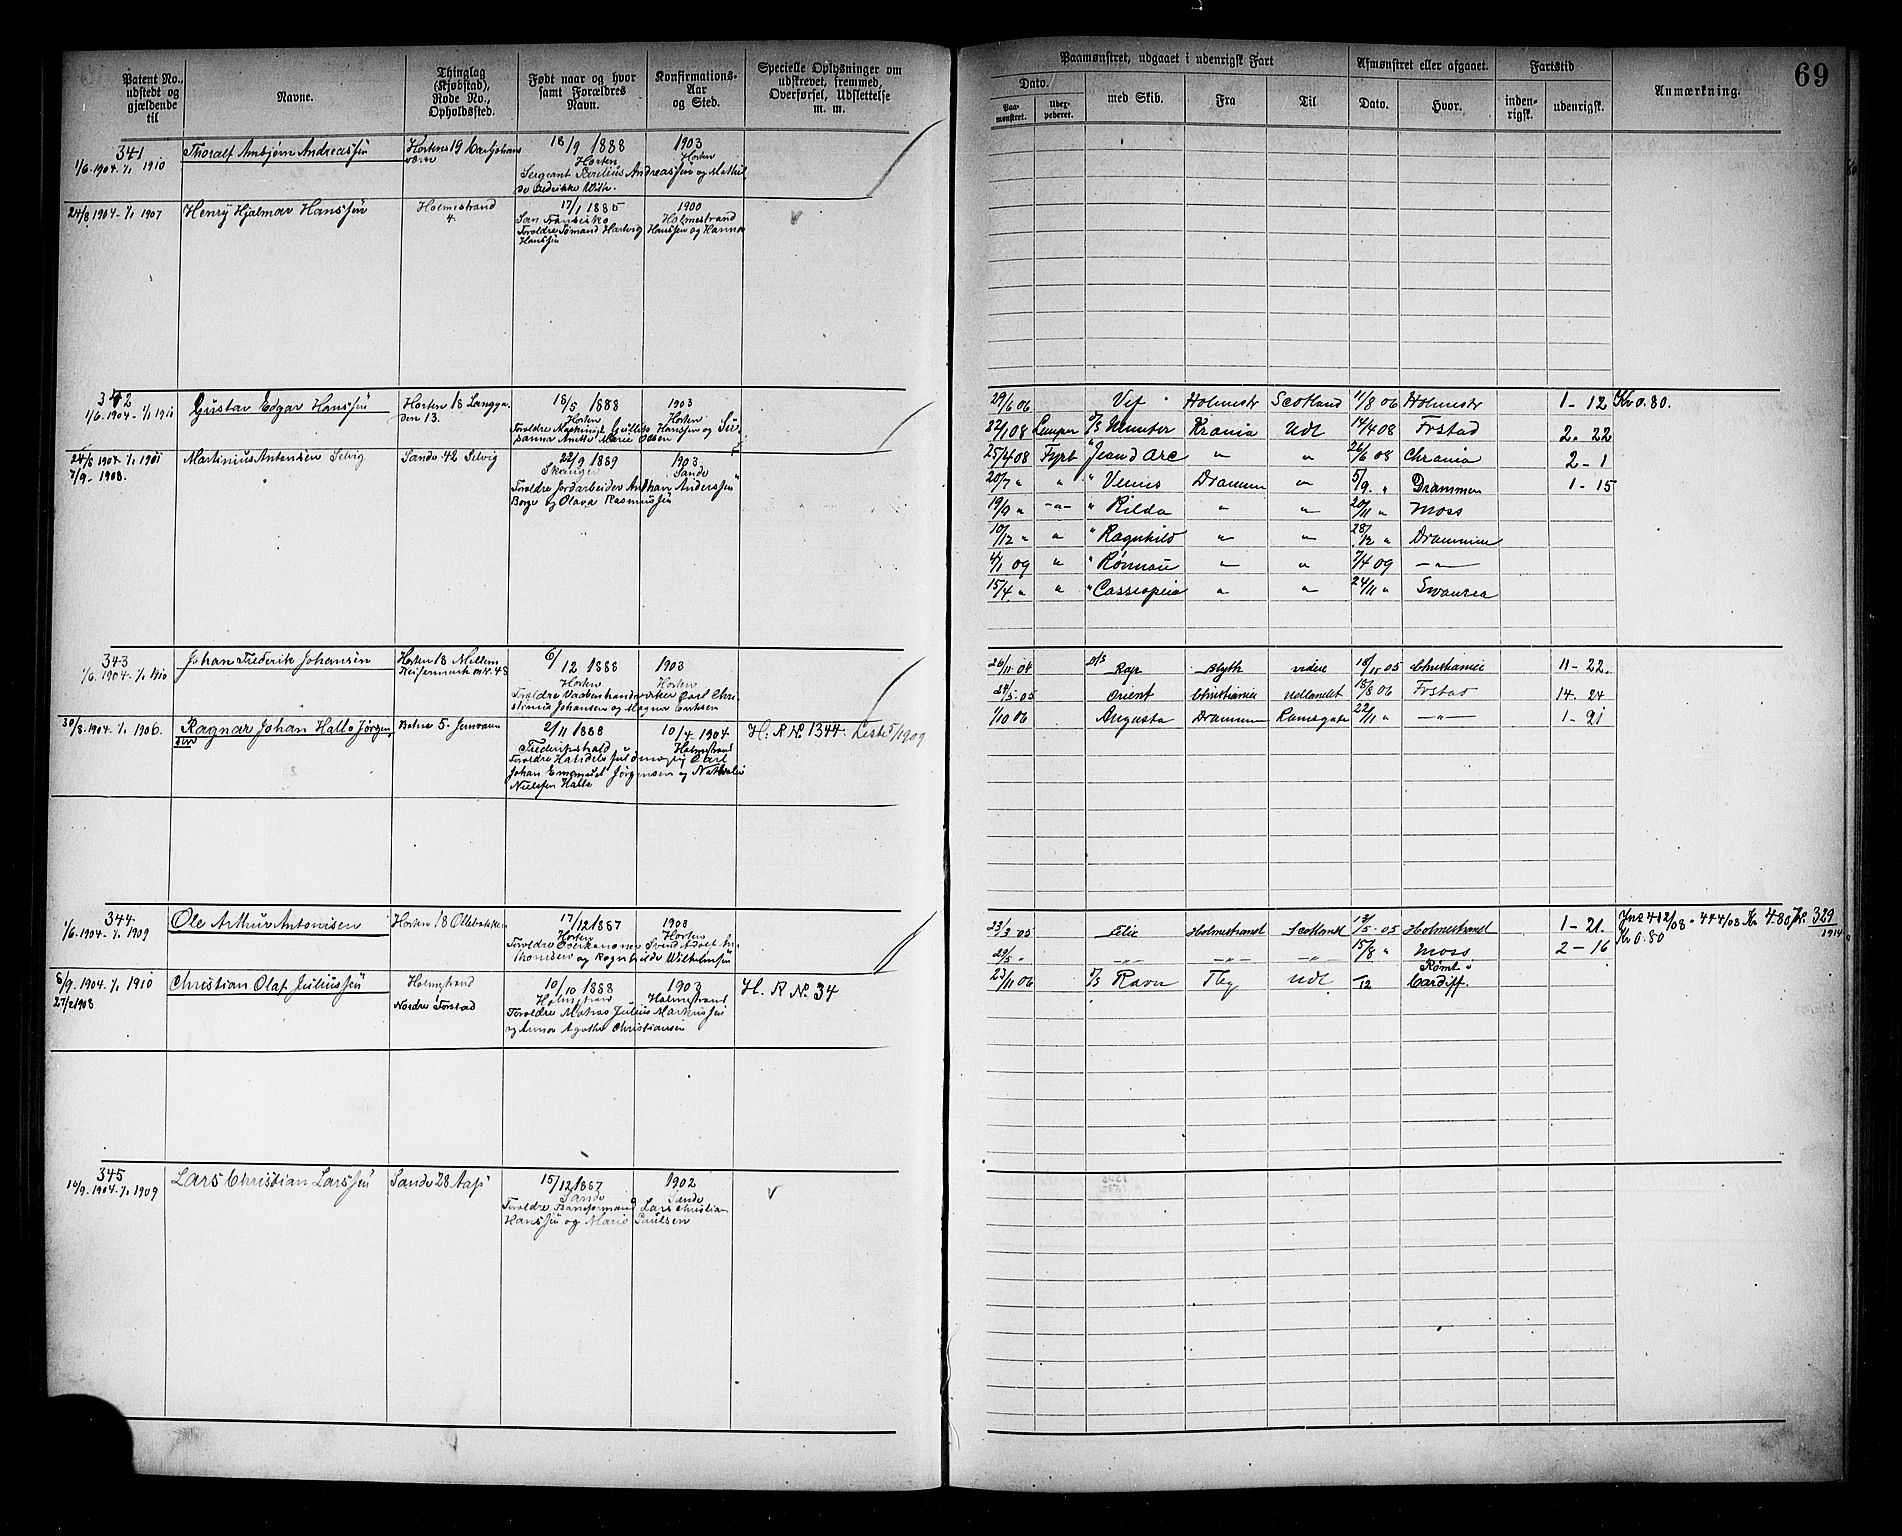 Patent No., udstedt og gjældende til
Navne.
Thinglag (Kjøbstad), Rode No., Opholdssted.
Født naar og hvor samt Forældres Navn.
Konfirmations-Aar og Sted.
Specielle Oplysninger om udskrevet, fremmed, Overførsel, Udslettelse m. m.
341
1/6. 1904. 1/1 1910
Thoralf Ambjørn Andreassen
Horten 19 Carljohans
værn
18/9 1888
Horten
1903
Horten
Sergeant Andreassen og Mathil
de Fredrikke With.
24/8 1904 - 1/1 1907
Henry Hjalmar Hanssen
Holmestrand
4.
17/1 1885
San Fransisko
1900
Holmestrand
Foreldre Sømand Hartvig Hanssen og Hanna
Hanssen
342
1/6. 1904 - 1/1 1911
Gustav Edgar Hanssen
Horten 18 Langga
den 13.
18/5 1888
Horten
1903
Horten
Foreldre Gullik Hanssen og Su
sanna Anette Marie Olsen
24/8 1904 - 1/1 1901
7/9 - 1908.
Martinius Antonsen Selvig
Sande 42 Selvig
22/9 1889
Skanger
1903
Sande
Foreldre Jordarbeider Anthan Anderssen
Borge og Olava Rasmussen
343
1/6. 1904. 1/1 1910
Johan Frederik Johansen
Horten 18 Mellem
Keisermark 48
6/12 1888
Horten
1903
Horten
Foreldre Carl Chri
stinius Johansen og Magna Eriksen
30/8. 1904. 1/1 1906.
Ragnar Johan Halle Jørgen
sen
Botne 5.
2/11 1888
Frederikshald
10/4 1904
Holmestrand
H. R No. 1344. Liste 5/1909
Foreldre Carl
Johan Emanuel Jørgensen og Nathalie
Nielsen Halle
344
1/6. 1904. 1/1 1909
Ole Arthur Antonisen
Horten 18 Ollebakken
17/12 1887
Horten
1903
Horten
Foreldre Overkanoner Svend Adolf An
thonisen og Ragnhilde Wilhelmsen
8/9. 1904. 1/1 1910
27/2 1908
Christian Olaf Juliussen
Holmestrand
Nordre Torstad
10/10 1888
Holmestrand
1903
Holmestrand
H. R No. 34
Foreldre Matias Julius Markussen
og Anna Agathe Christiansen
345
10/9. 1904. 1/1 1909
Lars Christian Larssen
Sande 28 Aasg
15/12 1887
Sande
1902
Sande
Foreldre Lars Christian
Hanssen og Marie Paulsen
69
Paamønstret, udgaaet i udenrigsk Fart
Afmønstret eller afgaaet.
Fartstid
Anmærkning.
Dato.
Paamønstret.
med Skib.
Fra
Til
Dato.
Hvor.
indenrigsk.
udenrigsk.
29/6 06 Vif Holmestr Scotland 11/8 06 Holmestr 1 - 12 Kr 0.80.
22/1 08 Lemper D/S Wunter Krania Udl 14/4 08 Frstad 2 - 22
25/4 08 Fyrb " Jean d Arc " " 26/6 08 Chrania 2 - 1
20/7 " " " Venus Drammen " 5/9. " Drammen 1 - 15
19/9 " - " - " Rilda " " 20/11 " Moss
10/12 " " " Ragnhild " " 28/12 " Drammen
4/1 09 " " Rønnau " " 7/4 09 - " -
15/4 " " " Cassiopeia " " 24/11 " Swansea
26/11 04 D/S Rap Blyth videre 18/11 05 Christiania 11 - 22.
24/5 05 Orient Christiania Udlandet 18/8 06 Frstad 14 - 24
1/10 06 Augusta Drammen Ramsgate 22/11 " - " - 1 - 21
23/3 05 Elie Holmestrand Scotland 13/5 - 05 Holmestrand 1 - 21.
Kr 4.80
329/1914
Kr 0.80
21/5 " - " - - " - - " - 15/8 " Moss 2 - 16
23/11 06 D/S Ravn Tbg Udl /12 Rømt i
Cardiff.